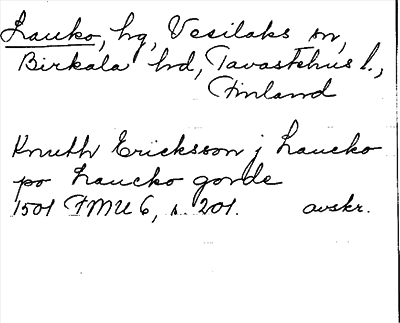 Lauko, hg, Vesilaks sn,
Birkala hd, Tavastehus l.,
Finland
Knuth Ericksson j Laucko
po Laucko gorde
1501 FMU 6, s. 201. avskr.